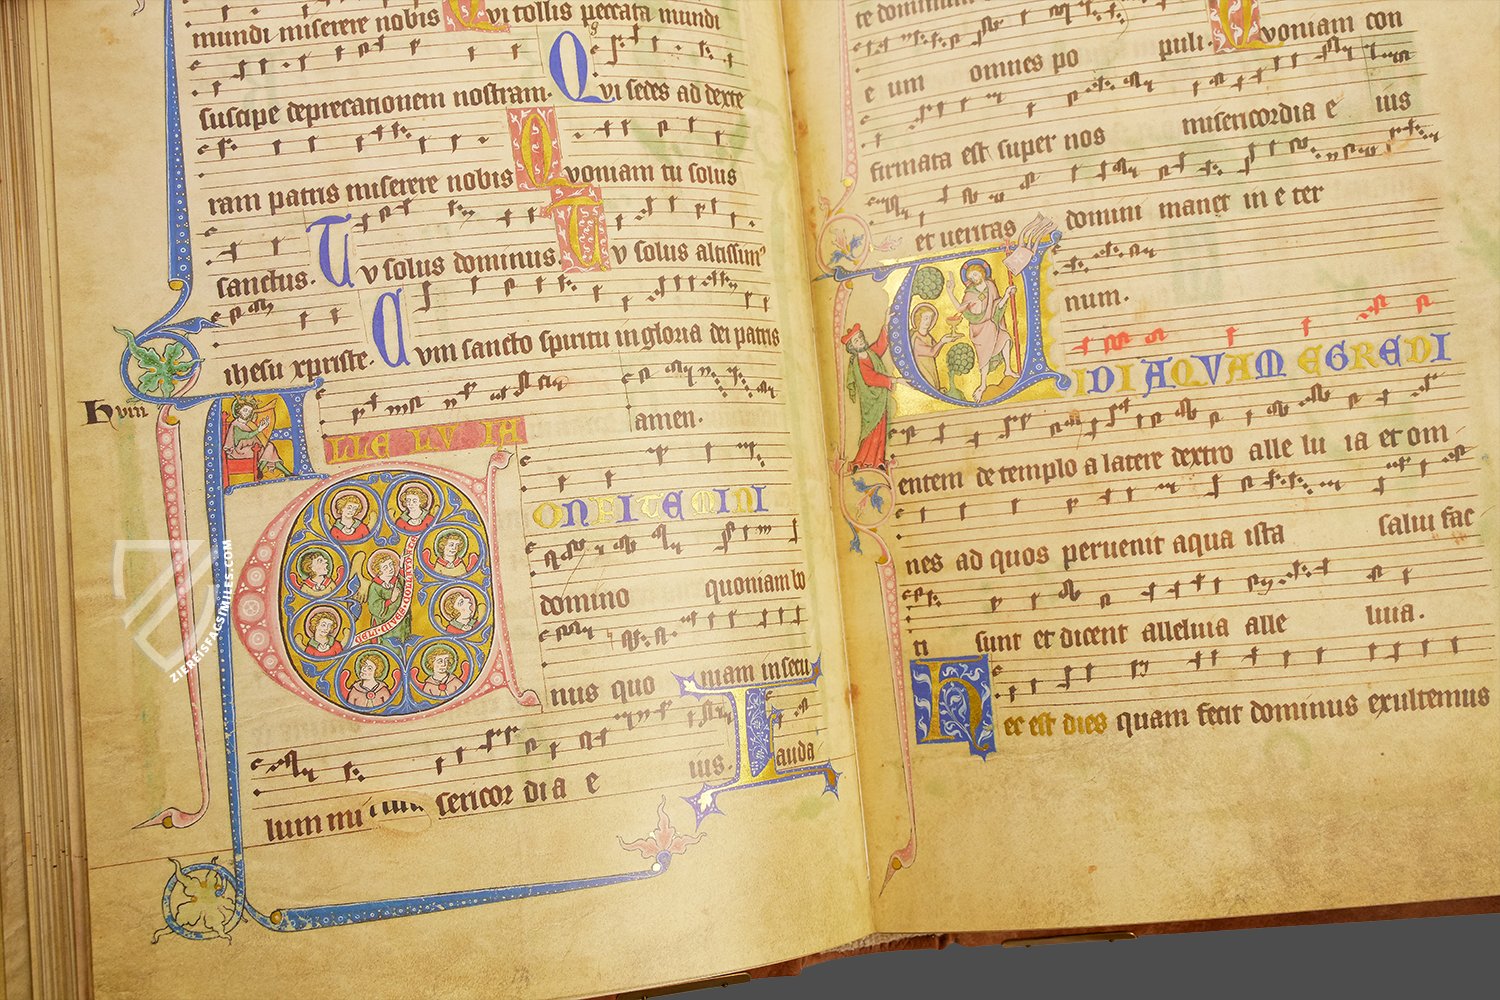 mundi miserere nobis Qvi tollis peccata mundi
suscipe deprecationem nostram. Qvi sedes ad dexte
ram patris miserere nobis Qvoniam tu solus
sanctus. Tv solus dominus. Tv solus altissim⁹
ihesu xpriste. Cvm sancto spiritu in gloria dei patris
hvm
amen.
ALLE LV IA
CONFITEMINI
domino quoniam bo
nus quo niam in secu
lum mi sericor di a e ius. Lauda
te dominum
e um omnes po puli. Qvoniam con
firmata est super nos misericordia e ius
et veritas domini manet in e ter
num.
VIDI AQVAM EGREDI
entem de templo a latere dextro alle lu ia et om
nes ad quos peruenit aqua ista salui fac
ti sunt et dicent alleluia alle luia.
Hec est dies quam fecit dominus exultemus
ZIEREISFACSIMILES.COM